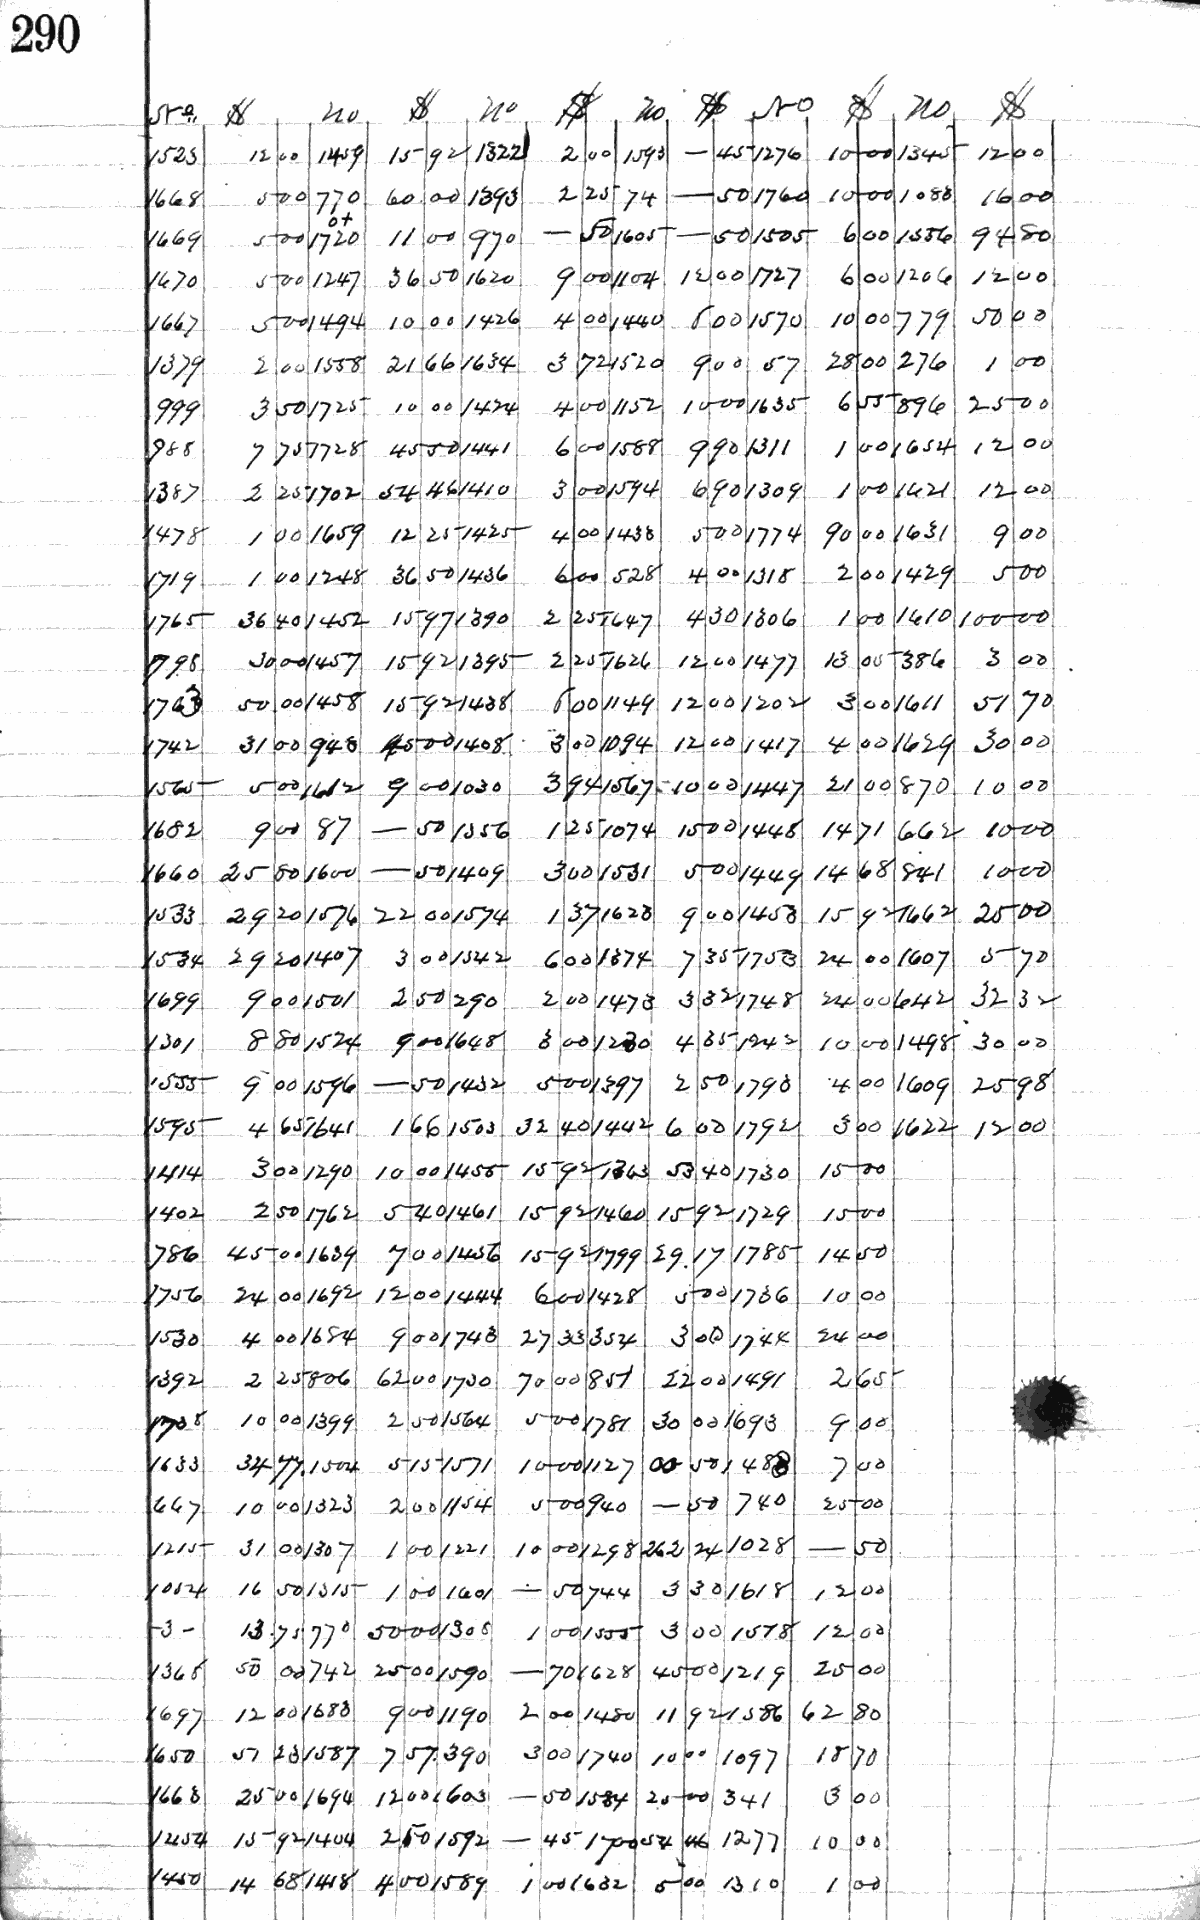 290
No. $ no $ no $ no $ No $ no $
1523 12 00 1459 15 92 1322 2 00 1593 — 45 1276 10 00 1345 12 00
1668 5 00 770 60 00 1393 2 25 74 — 50 1760 10 00 1083 16 00
1669 5 00 1720 11 00 970 — 50 1605 — 50 1505 6 00 1556 94 80
1670 5 00 1247 36 50 1620 9 00 1104 12 00 1727 6 00 1206 12 00
1667 5 00 1494 10 00 1426 4 00 1440 6 00 1570 10 00 779 50 00
1379 2 00 1558 21 66 1634 3 72 1520 9 00 57 28 00 276 1 00
999 3 50 1725 10 00 1424 4 00 1152 10 00 1635 6 55 896 25 00
988 7 75 1728 45 50 1441 6 00 1588 9 90 1311 1 00 1654 12 00
1387 2 25 1702 54 46 1410 3 00 1594 6 90 1309 1 00 1421 12 00
1478 1 00 1659 12 25 1425 4 00 1438 5 00 1774 90 00 1631 9 00
1719 1 00 1248 36 50 1436 6 00 528 4 00 1318 2 00 1429 5 00
1765 36 40 1452 15 97 1390 2 25 1647 4 30 1306 1 00 1610 100 00
1798 30 00 1457 15 92 1395 2 25 1626 12 00 1477 13 05 386 3 00
1763 50 00 1458 15 92 1438 6 00 1149 12 00 1202 3 00 1611 51 70
1742 31 00 948 45 00 1408 3 00 1094 12 00 1417 4 00 1629 30 00
1565 5 00 1612 9 00 1030 3 94 1567 10 00 1447 21 00 870 10 00
1682 9 00 87 — 50 1356 1 25 1074 15 00 1448 14 71 662 10 00
1660 25 80 1600 — 50 1409 3 00 1531 5 00 1449 14 68 841 10 00
1533 29 20 1576 22 00 1574 1 37 1623 9 00 1453 15 92 1662 25 00
1534 29 20 1407 3 00 1542 6 00 1374 7 35 1753 24 00 1607 5 70
1699 9 00 1501 2 50 290 2 00 1473 3 32 1748 24 00 642 32 32
1301 8 80 1524 9 00 1648 3 00 1230 4 35 1242 10 00 1498 30 00
1555 9 00 1596 — 50 1432 5 00 1397 2 50 1793 4 00 1609 25 98
1595 4 65 1641 1 66 1503 32 40 1442 6 00 1792 3 00 1622 12 00
1414 3 00 1290 10 00 1455 15 92 1363 53 40 1730 15 00
1402 2 50 1762 5 40 1461 15 92 1460 15 92 1729 15 00
786 45 00 1639 7 00 1456 15 92 1799 29 17 1785 14 50
1756 24 00 1692 12 00 1444 6 00 1428 5 00 1736 10 00
1530 4 00 1684 9 00 1743 27 33 354 3 00 1744 24 00
1392 2 25 806 62 00 1730 70 00 851 22 00 1491 2 65
1708 10 00 1399 2 50 1564 5 00 1781 30 00 1693 9 00
1633 34 77 1504 5 15 1571 10 00 1127 00 50 1488 7 00
667 10 00 1323 2 00 1154 5 00 940 — 50 740 25 00
1215 31 00 1307 1 00 1221 10 00 1298 262 24 1028 — 50
1054 16 50 1315 1 00 1601 — 50 744 3 30 1618 12 00
-3- 13 75 770 50 00 1305 1 00 1555 3 00 1578 12 00
1365 50 00 742 25 00 1590 — 70 1628 45 00 1219 25 00
1697 12 00 1683 9 00 1190 2 00 1480 11 92 1586 62 80
1650 51 23 1587 7 57 390 3 00 1740 10 00 1097 18 70
1663 25 00 1694 12 00 1603 — 50 1584 25 00 341 3 00
1454 15 92 1404 2 50 1592 — 45 1700 54 46 1277 10 00
1450 14 68 1418 4 00 1589 1 00 1632 5 00 1310 1 00